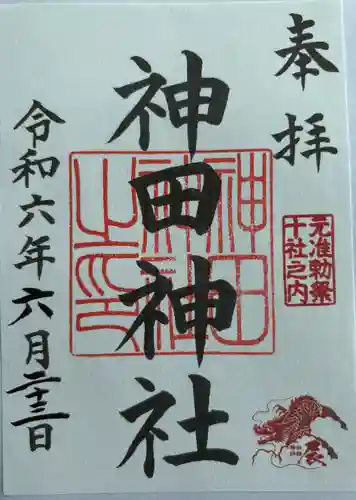 奉拝
元准勅祭
十社之内
神田神社
神田
神社
之印
辰
令和六年六月二十三日